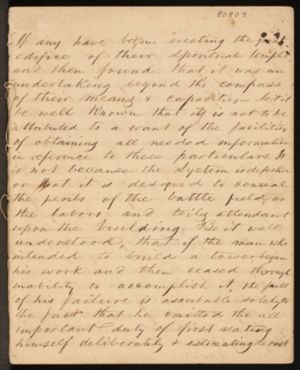 80807
If any have begun erecting the great
edifice of their spiritual temple
and then found that it was an
undertaking beyond the compass
of their means & capacities let it
be well known that it is not to be
attributed to a want of the facilities
of obtaining all needed information
in reference to these particulars. It
is not because the system is defective
or that it is designed to conceal
the perils of the battle field, or
the labors and toils attendant
upon the building. Be it well
understood, that if the man who
intended to build a tower began
his work and then ceased through
inability to accomplish it, the fault
of his failure is ascribable solely to
the fact that he omitted the all
important duty of first seating
himself deliberately & estimating the cost